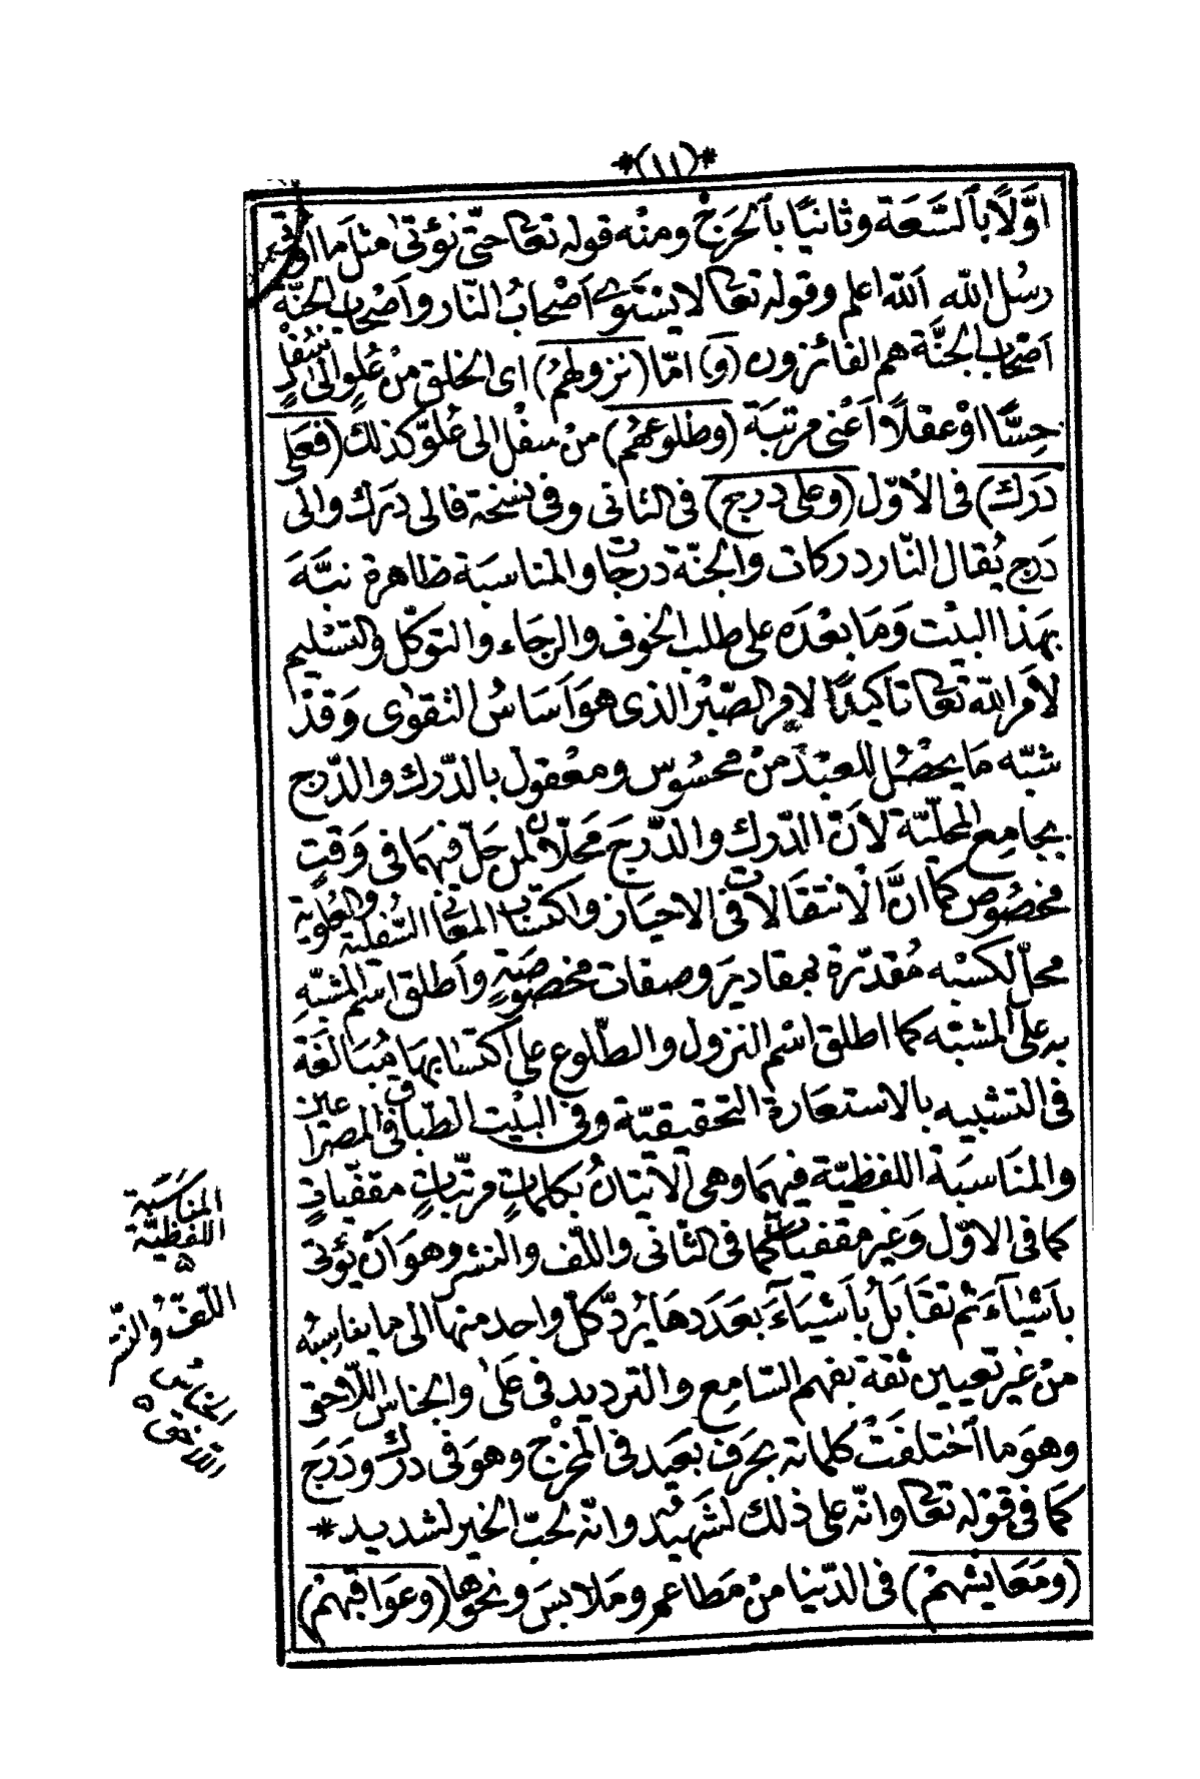 *(١١)*
اوَّلًا بٱلسَّعَة وثانيًا بٱلحَرَجْ ومنْه قوله تعا حتّى نؤتى مثلَ ما اوتى
رسُل الله اَلله اعلم وقوله تعا لا يستَوى اَصْحابُ النّار واَصْحاب الجنّة
اَصْحاب الجنَّة هم الفائزون (وَ) امّا (نزولهمُ) اى الخلق منْ عُلوٍ الى سُفْلٍ
حِسًّا اوْ عقلًا واَعْنى مرتبَة (وطلوعهُم) منْ سفْل الى عُلوّ كذلك (فعَلى
دَرَك) فى الأوّل (وعلى درج) فى الثانى وفى نسْخة فالى دَرَك والى
دَرَج يُقال النّار دركات والجنّة درجات والمناسبَة ظاهرة نبَّهَ
بهَذا البيْت وَمَا بعْدَه على طلب الخوف والرجَاء والتوكّل والتسْليم
لأمر الله تعا تاكيدًا لامر الصّبْر الذى هوَ اَسَاسُ التقوٰى وَقدْ
شبّه مَا يحْصُل للعبْد منْ محسُوس ومعْقول بالدّرك والدّرج
بجامِع المحلّيّة لاَنّ الدّرك والدَّرجَ مَحلّان لمن حَلّ فيهمَا فى وَقتٍ
مخصُوص كمَا انَّ الْانتقَالات فى الاحيَاز واكتسَاب المعَانى السُّفليّة والعُلويّة
محلّ لكسْبه مُقدّرة بمقاديرَ وصفات مخصُوصَةٍ واَطلق اسْم المُشبّهِ
به على المشبّه كما اطلق اسْم النزول والطّلوع على اكتسَابهَا مُبَالغَة
فى التشبيه بالاستعَارة التحقيقيّة وفى البيْت الطّباق فى المصرَاعين
والمنَاسبَة اللفظيّة فيهمَا وهى الْاتيَانُ بكلماتٍ مرتّباتٍ مقفّياتٍ
كما فى الاوّل وَغير مقفيات كما فى الثّانى واللّف والنشر وهوَ اَنْ يؤتى
باَشيآءَ ثم تقَابَلُ باَشيَآءَ بعَدَدهَا يُردّ كلّ واحد منهَا الى ما يناسبُه
منْ غير تعيين ثقة بفهم السّامِع والترديد فى عَلى والجناس اللّاحق
وهوَ ما اٱختلفَتْ كلماته بحَرف بعَيد فى المخْرجْ وهوَ فى دَرك ودَرَج
كمَا فى قوْله تعا وانّه على ذلك لشَهيْد وانّه لحبّ الخير لشديد *
(ومَعَايشهمْ) فى الدّنيا منْ مَطاعم ومَلابسَ ونحوهَا (وعوَاقبهمْ)
المنَاسَبَة
اللفظيّة
اللّفّ والنّشر
الجنَاسُ
اللّاحق